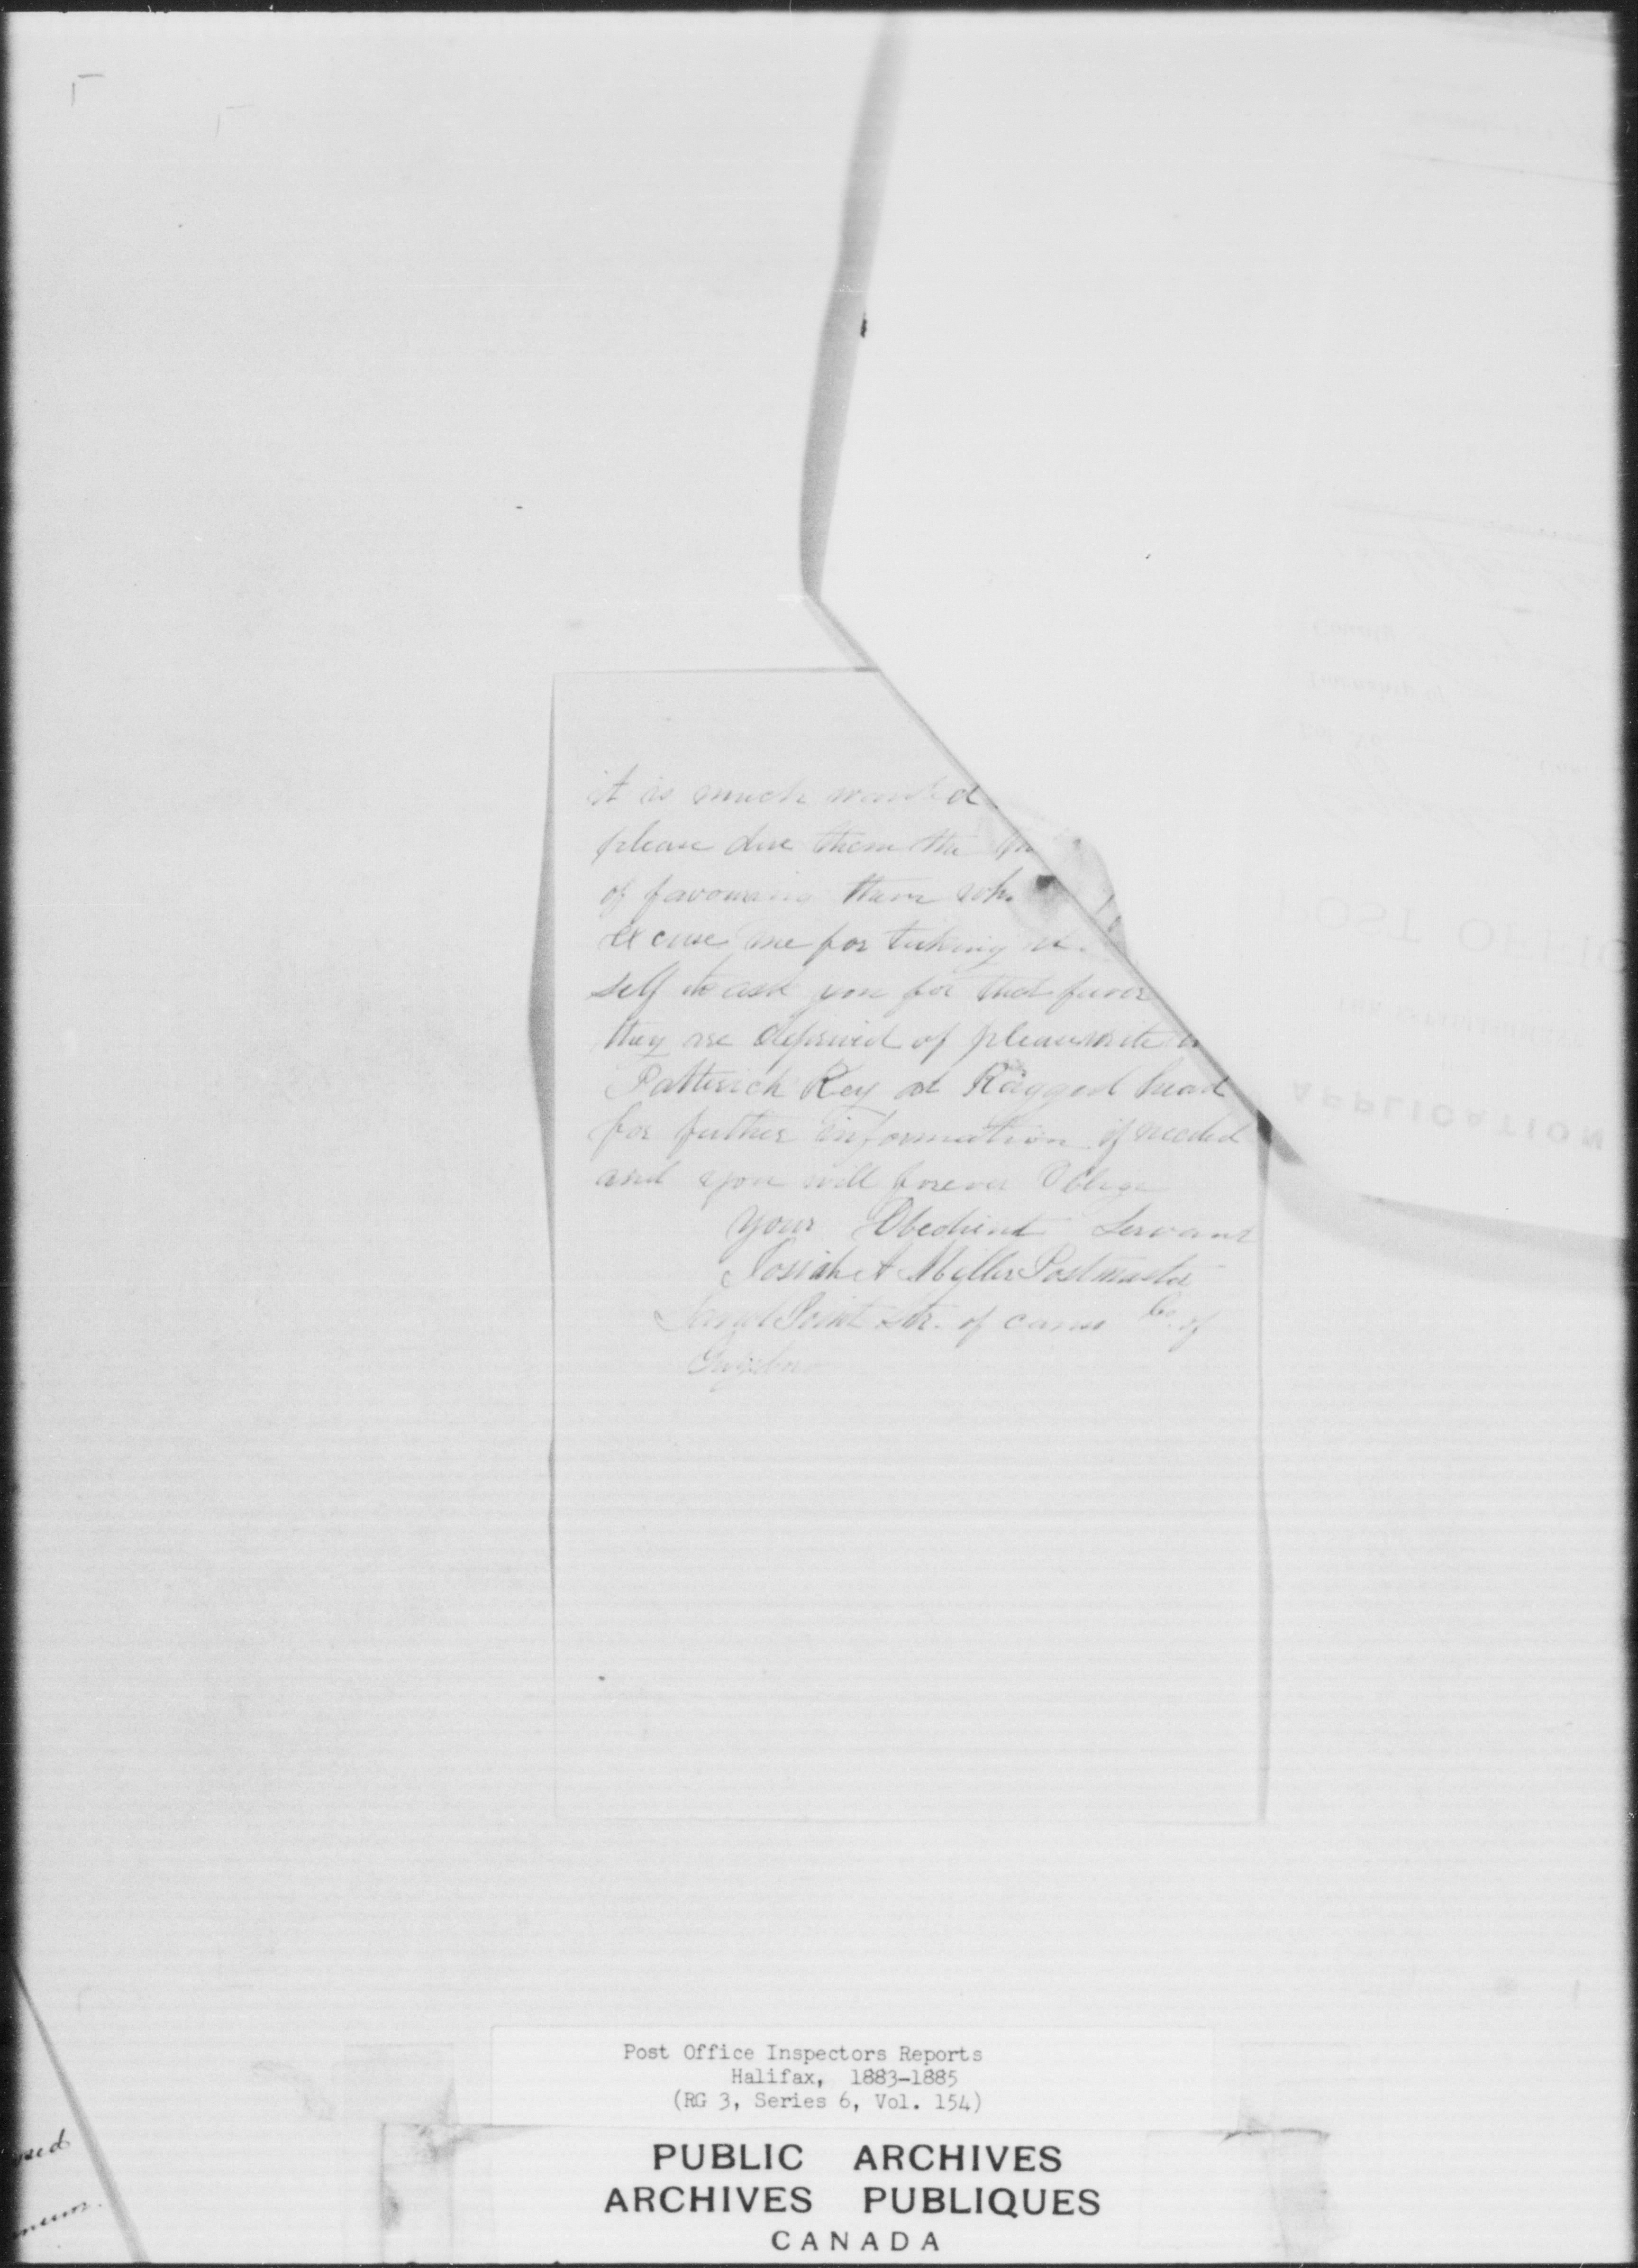 it is much wanted.
please due them the
of favouring them
excuse me for taking
self to ask you for that favor
they are deprived of please write
Patterick Key at Ragged head
for futher information if needed
and you will forever Oblige
your Obedient Servant
Josiah A Miller Postmaster
Sand Point Str. of canso Co. of
Guysboro
POST
APPLICATION
Post Office Inspectors Reports
Halifax, 1883-1885
(RG 3, Series 6, Vol. 154)
PUBLIC ARCHIVES
ARCHIVES PUBLIQUES
CANADA